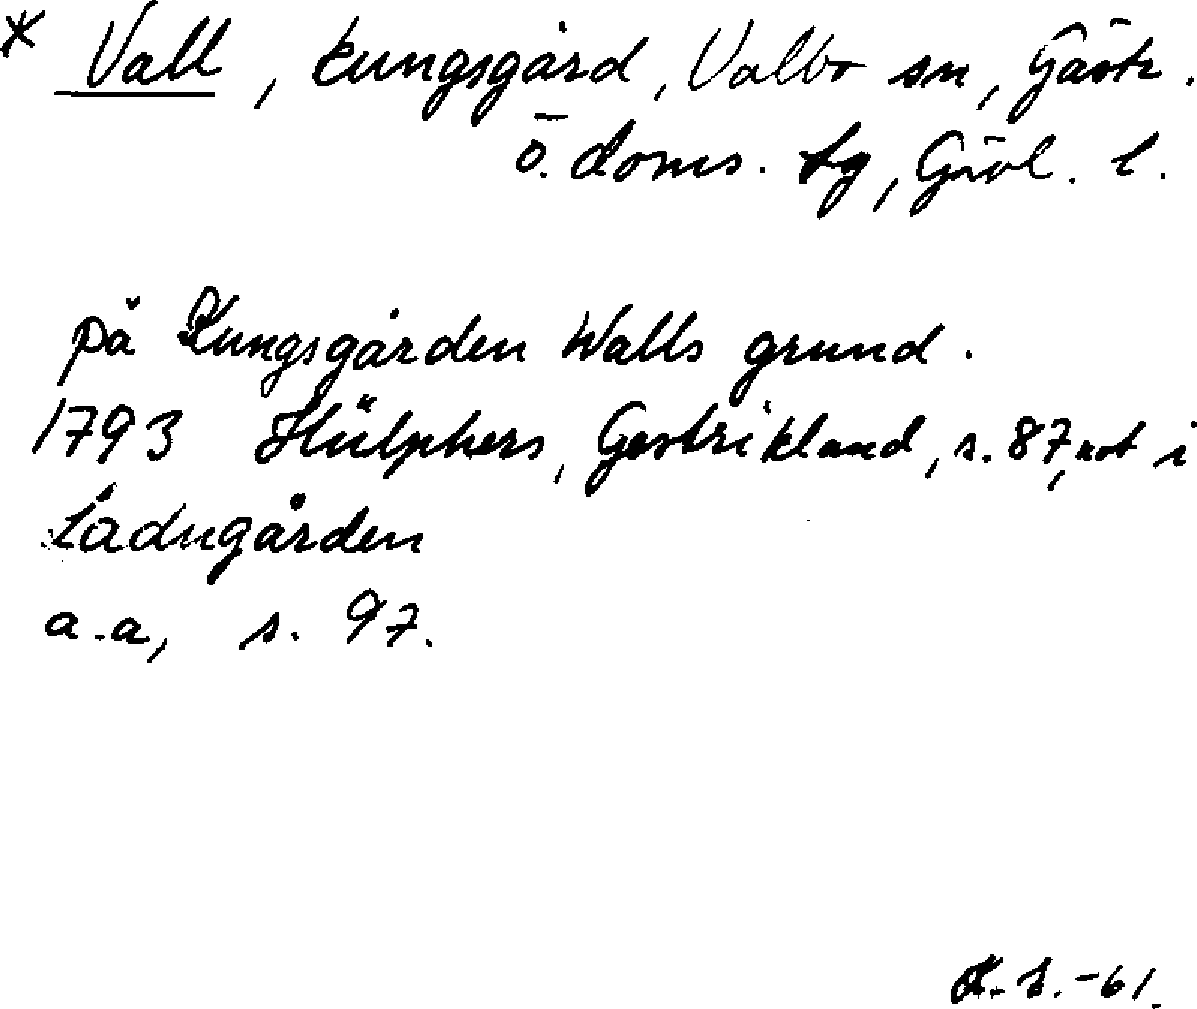 * Vall, kungsgård, Valbo sn, Gästr.
ö. doms. tg, Gävl. l.
på Kungsgården Walls grund.
1793 Hülphers, Gestrikland, s. 87, not i
Ladugården
a.a, s. 97.
-61.